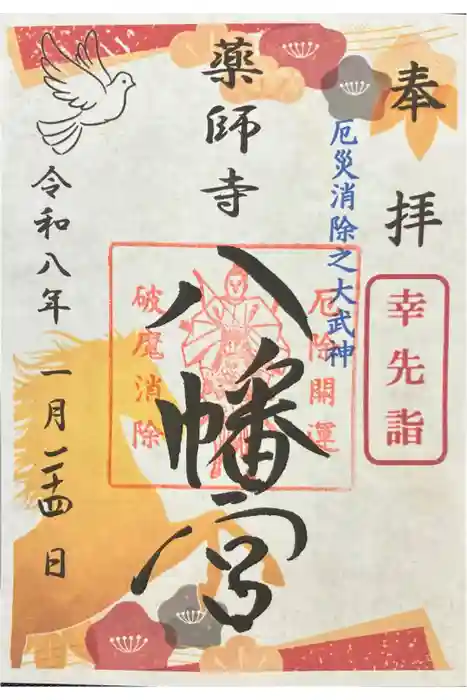 奉拝
幸先詣
厄災消除之大武神
厄除開運
薬師寺
八幡宮
破魔消除
令和八年 一月二十四日